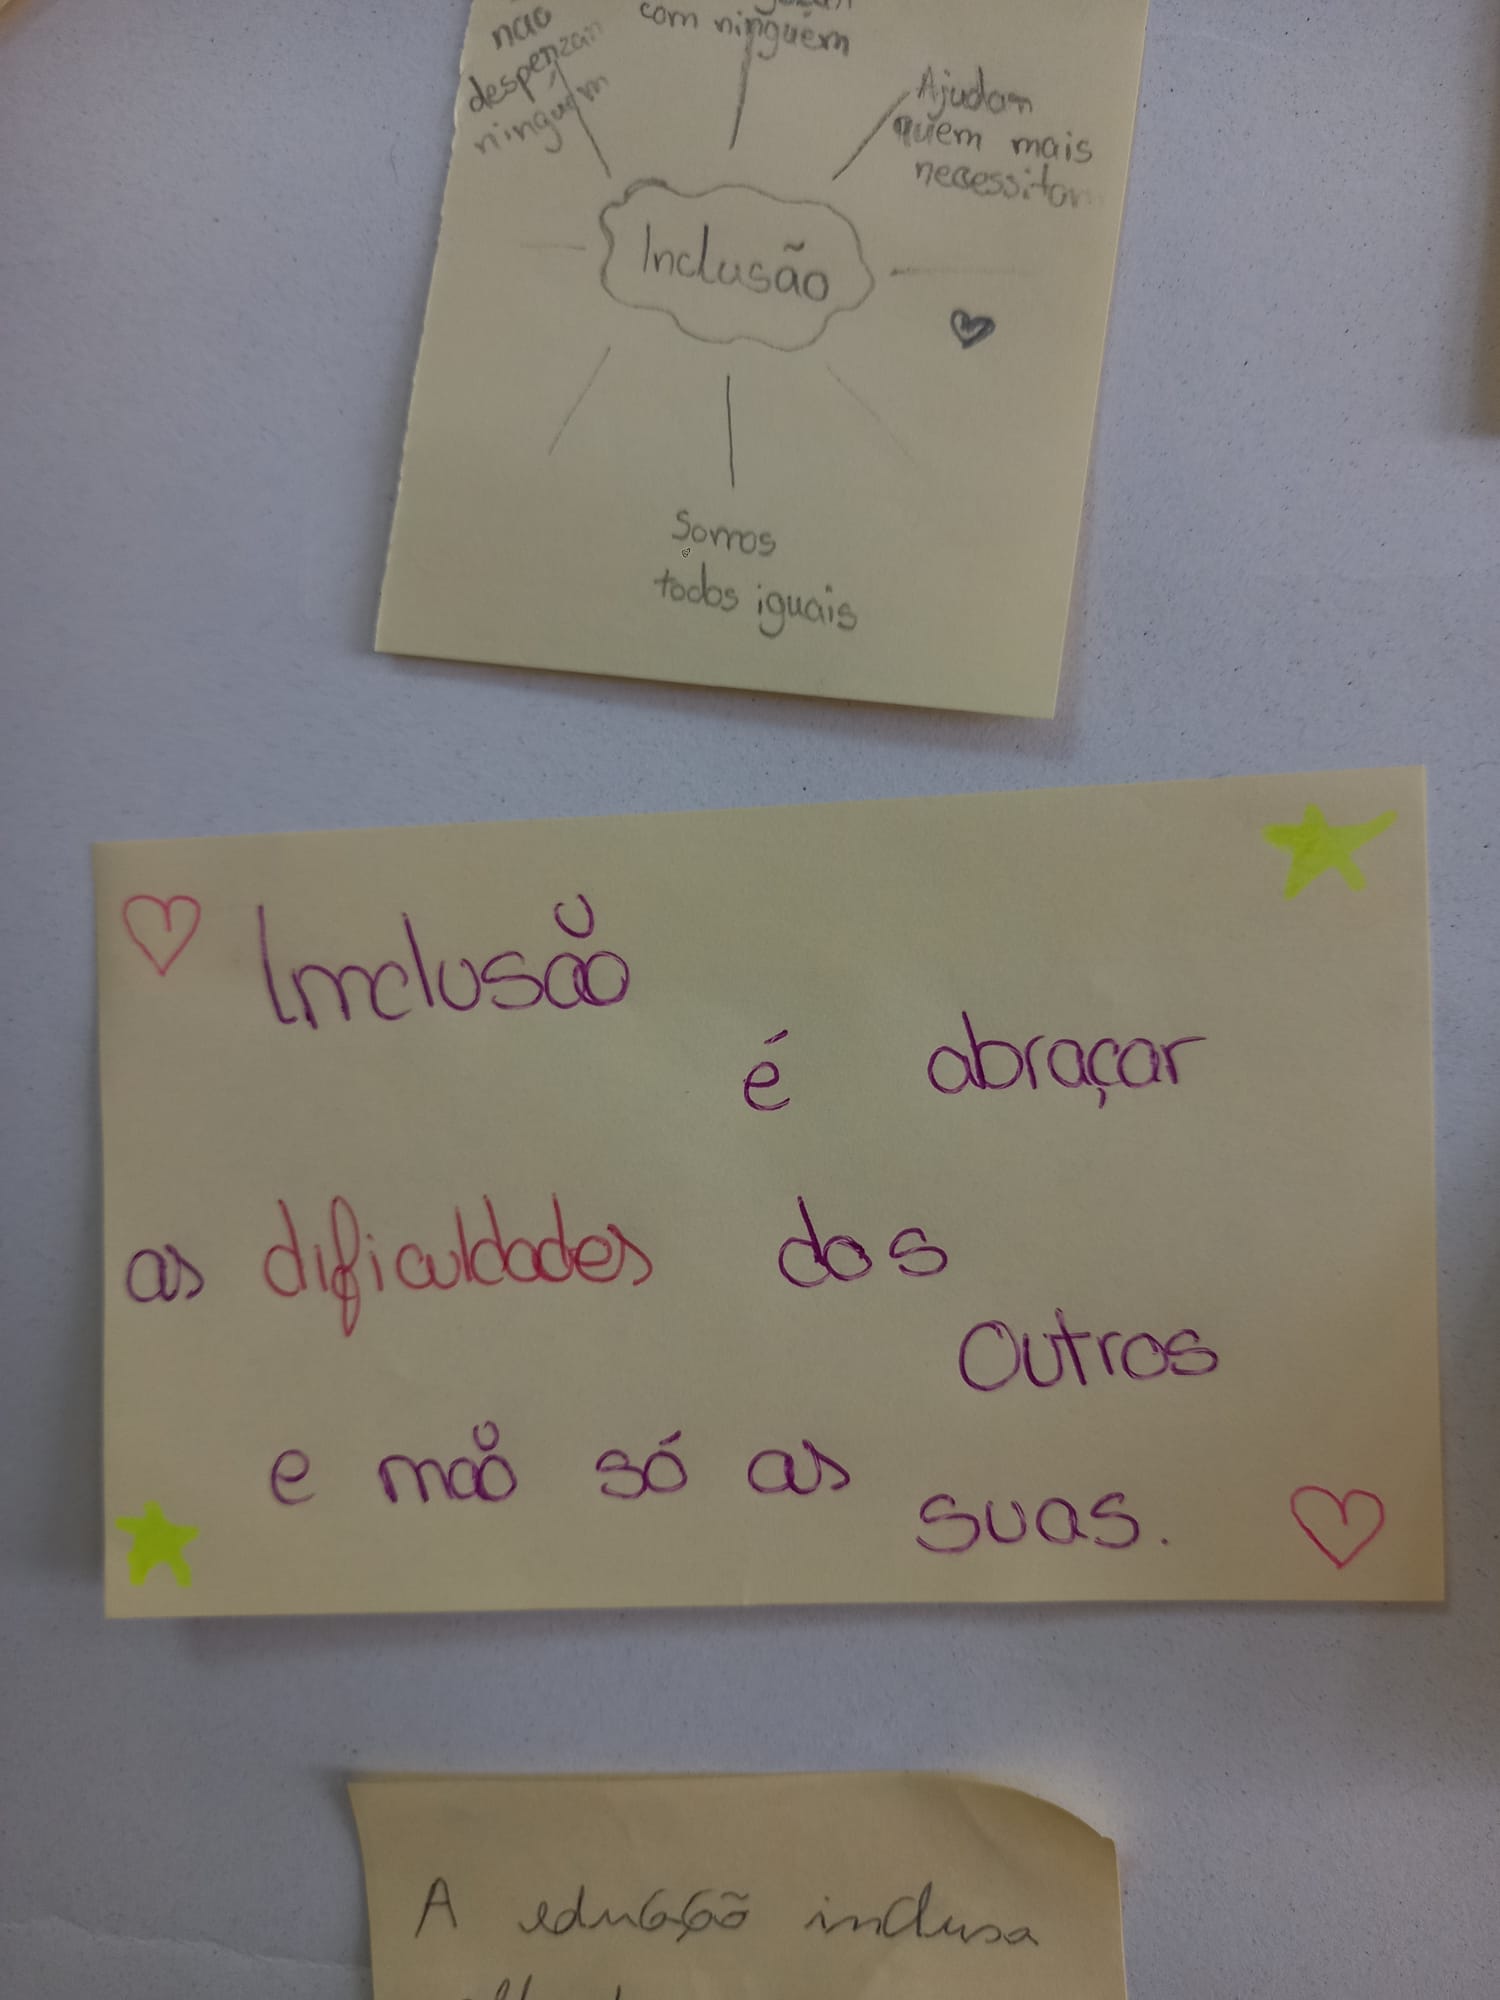 não
com ninguém
ninguém
Ajudar
quem mais
necessitar
Inclusão
Somos
todos iguais
Inclusão
é abraçar
as dificuldades dos
outros
e não só as
suas.
A edução inclusa